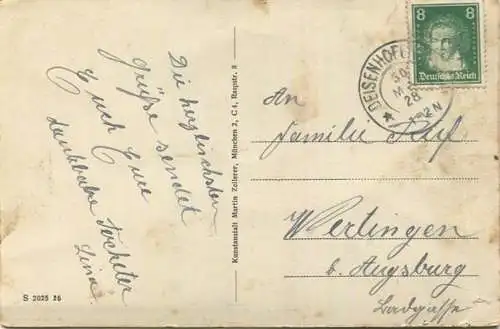 Die herzlichsten
Grüße sendet
Euch Eure
dankbare Tochter
Lina
S 2025 26
Kunstanstalt Martin Zollerer, München 2, C 4, Raspstr. 8
8 8
Deutsches Reich
DEISENHOFEN
30.
28
2N
An
Familie
Wertingen
b. Augsburg
Badgasse